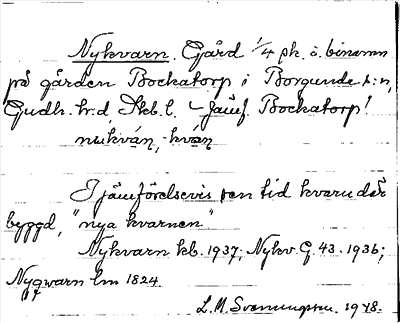 Nykvarn. Gård 1/4 ph. o. binamn
på gården Bockatorp i Borgunda s:n,
Gudh. hr. d, Skb. l. – Jämf. Bockatorp!
nukván, -kván
Jämförelsevis sen tid kvarn där
byggd, "nya kvarnen"
Nykvarn kb. 1937; Nykv. G. 43. 1936;
Nyqwarn lm 1824.
L. M. Svenungsson. 1948.